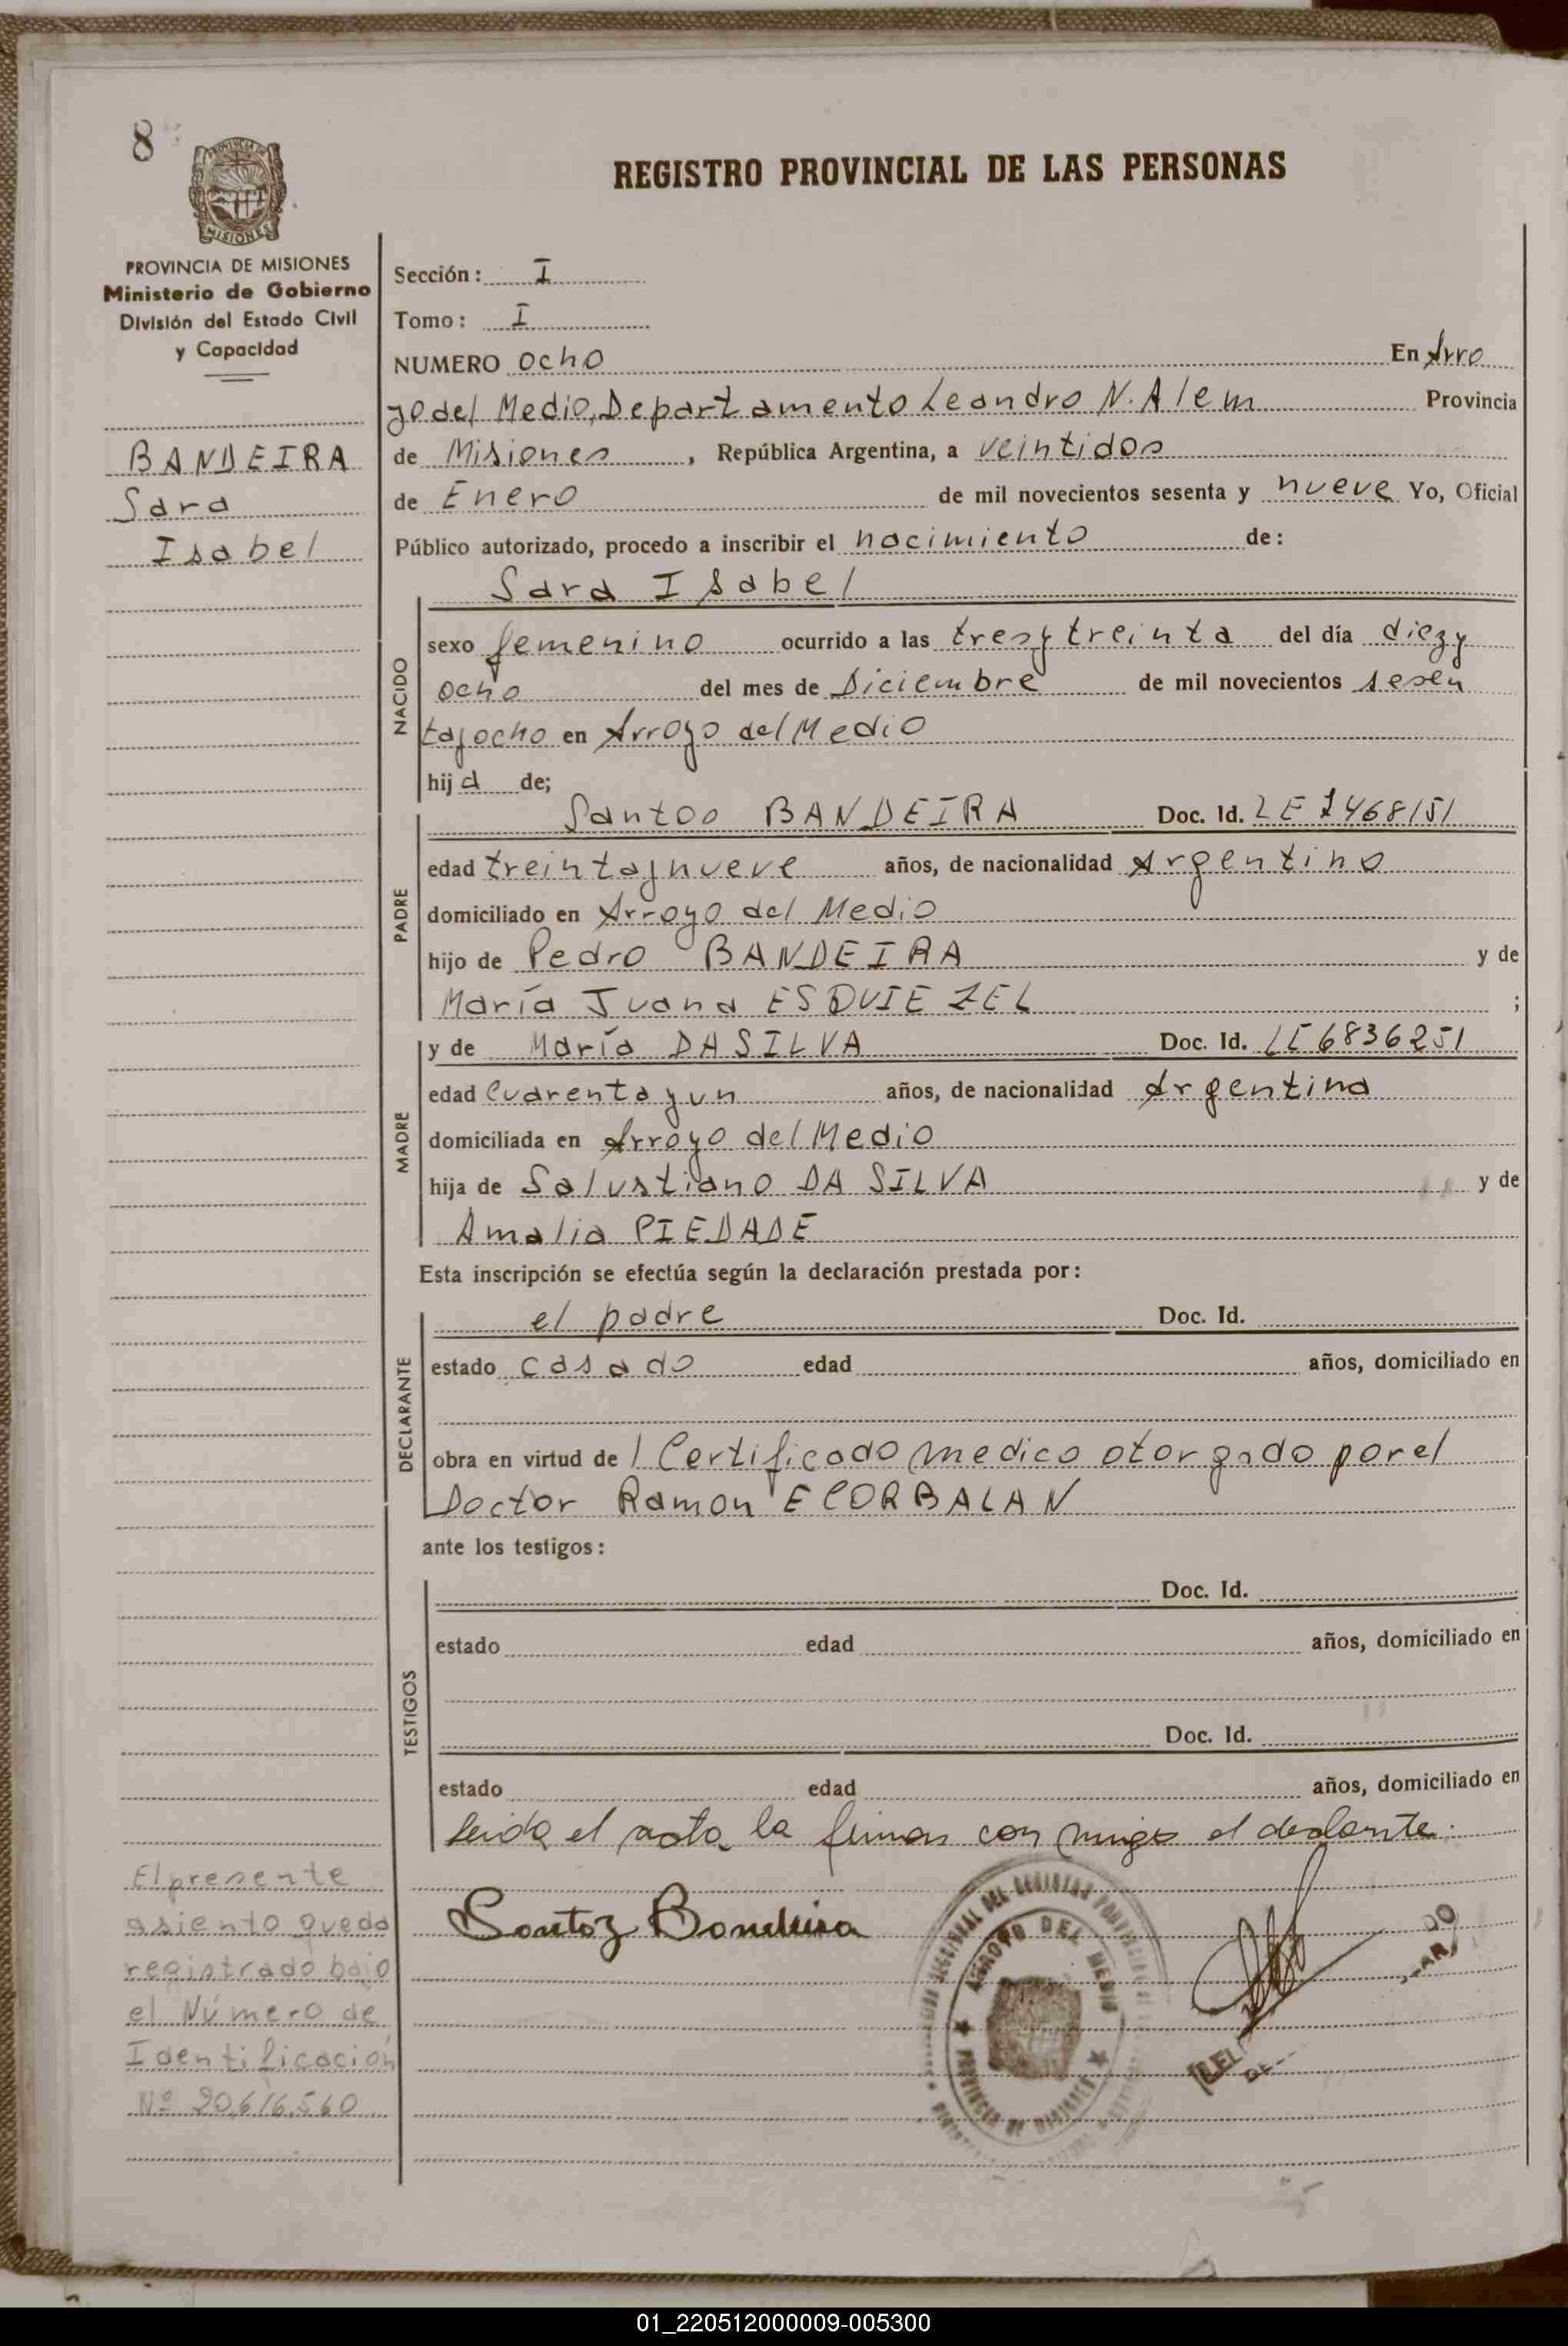 8
PROVINCIA DE
MISIONES
REGISTRO PROVINCIAL DE LAS PERSONAS
PROVINCIA DE MISIONES
Ministerio de Gobierno
División del Estado Civil
y Capacidad
BANDEIRA
Sara
Isabel
Sección: I
Tomo: I
NUMERO ocho En Arro
yo del Medio, Departamento Leandro N. Alem Provincia
de Misiones, República Argentina, a veintidos
de Enero de mil novecientos sesenta y nueve Yo, Oficial
Público autorizado, procedo a inscribir el nacimiento de:
Sara Isabel
NACIDO
sexo femenino ocurrido a las tres y treinta del día diez y
ocho del mes de Diciembre de mil novecientos sesen
ta y ocho en Arroyo del Medio
hija de;
PADRE
Santos BANDEIRA Doc. Id. LE 7468151
edad treinta y nueve años, de nacionalidad Argentino
domiciliado en Arroyo del Medio
hijo de Pedro BANDEIRA y de
María Juana ESQUIEZEL ;
MADRE
y de María DA SILVA Doc. Id. LC 6836251
edad cuarenta y un años, de nacionalidad Argentina
domiciliada en Arroyo del Medio
hija de Salustiano DA SILVA y de
Amalia PIEDADE
Esta inscripción se efectúa según la declaración prestada por:
DECLARANTE
el padre Doc. Id.
estado casado edad años, domiciliado en
obra en virtud de l Certificado medico otorgado por el
Doctor Ramon E CORBALAN
ante los testigos:
TESTIGOS
Doc. Id.
estado edad años, domiciliado en
Doc. Id.
estado edad años, domiciliado en
leida el acta la firman con migo el
Santoz Bandeira
ARROYO DEL MEDIO
PROVINCIA DE MISIONES
El presente
asiento queda
registrado bajo
el Número de
Identificación
Nº 20.616.560
01_220512000009-005300